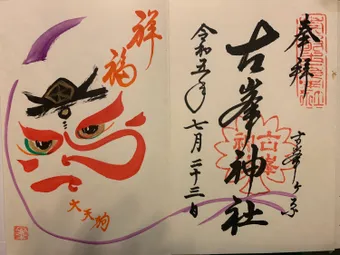 奉拝
古峯ヶ原
古峯神社
古峯
神社
令和五年七月二十三日
祥福
大天狗